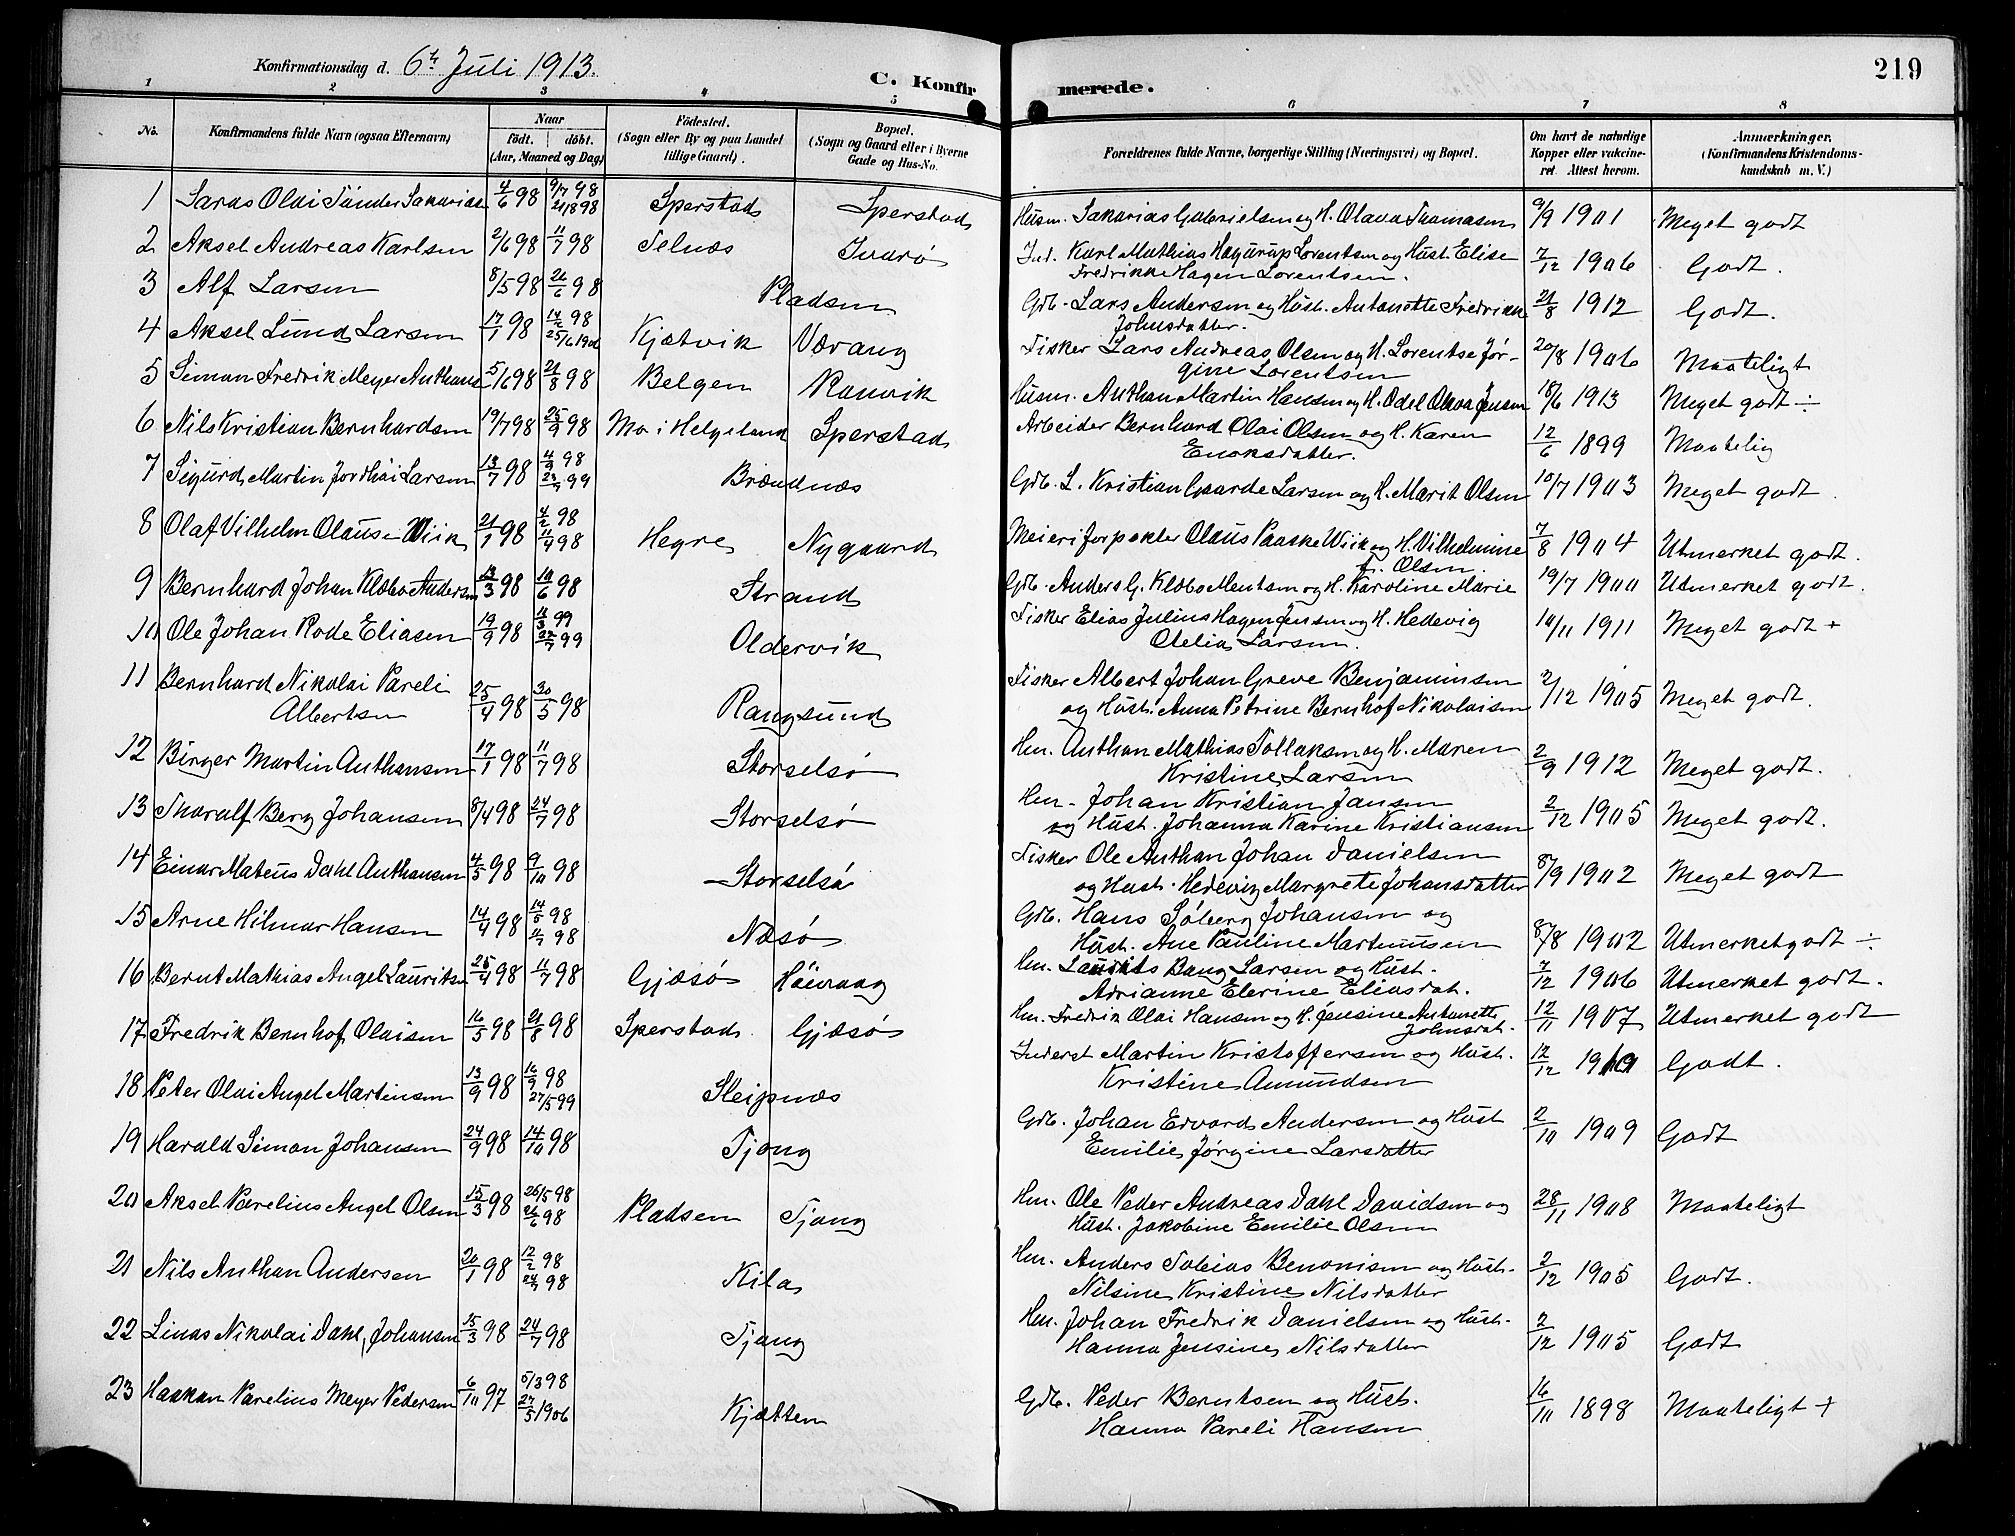 Konfirmationsdag d. 6te Juli 1913.
C. Konfirmerede.
219
1 2 3 4 5 6 7 8
No.
Konfirmandens fulde Navn (ogsaa Efternavn)
Naar
födt. döbt.
(Aar, Maaned og Dag)
Födested.
(Sogn eller By og paa Landet tillige Gaard).
Bopæl.
(Sogn og Gaard eller i Byerne Gade og Hus-No.
Forældrenes fulde Navne, borgerlige Stilling (Næringsvei) og Bopæl.
Om havt de naturlige Kopper eller vakcineret. Attest herom.
Anmærkninger,
(Konfirmandens Kristendomskundskab m. V.)
1 Olai Tönder 4/6 98 9/7 98 21/8 98 Sperstad Sperstad Husm. Sakarias Gabrielsen og H. Olava Tomasen 9/9 1901 Meget godt
2 Aksel Andreas Karlsen 2/6 98 11/7 98 Selnæs Ind. Karl Mathias Lorentsen og Hust. Elise
Fredrikke Hagen Lorentsen. 7/12 1906 Godt.
3 Alf Larsen 8/5 98 26/6 98 Pladsen Gdb. Lars Andersen og Hust. Antonette Fredrikke
Johnsdatter. 21/8 1912 Godt.
4 Aksel Lund Larsen 17/1 98 14/2 98 25/6 1900 Kjætvik Værang Fisker Lars Andreas Olsen og H. Lorentse Jør-
gine Lorentsen 20/8 1906 Maateligt
5 Simon Fredrik Meyer Anthons 5/6 98 21/8 98 Belgen Ranvik Husm. Anthon Martin Hansen og H. Odel Olava Jensen 18/6 1913 Meget godt ÷
6 Nils Kristian Bernhardsen 19/7 98 25/9 98 Mo i Helgeland Sperstad Arbeider Bernhard Olai Olsen og H. Karen
Enoksdatter. 12/6 1899 Maatelig
7 Sigurd Martin Jordhöi Larsen 13/7 98 4/9 98 23/7 99 Brændnæs Gdb. L. Kristian Gaarde Larsen og H. Marit Olsen 10/7 1903 Meget godt
8 Olaf Vilhelm Olausen Wiik 21/1 98 4/2 98 11/4 98 Hegre Nygaard Meieriforpakter Olaus Paaske Wiik og H. Vilhelmine
f. Olsen. 7/8 1904 Utmerket godt.
9 Bernhard Johan Klæbo Andersen 13/3 98 19/6 98 Strand Gdb. Anders G. Klæbo Mentsen og H. Karoline Marie 19/7 1900 Utmerket godt.
10 Ole Johan Rode Eliasen 19/9 98 11/3 99 22/7 99 Oldervik Fisker Elias Julius Hagen Jensen og H. Hedevig
Otelia Larsen. 14/11 1911 Meget godt +
11 Bernhard Nikolai Pareli
Albertsen 25/4 98 30/5 98 Rangsund Fisker Albert Johan Greve Benjaminsen
og Hust. Anna Petrine Bernhof Nikolaisen 2/12 1905 Meget godt.
12 Birger Martin Anthonsen 17/1 98 11/7 98 Storselsø Hm. Anthon Mathias Tollaksen og H. Maren
Kristine Larsen 2/9 1912 Meget godt.
13 Thoralf Berg Johansen 8/4 98 24/7 98 Storselsø Hm. Johan Kristian Jansen
og Hust. Johanna Karine Kristiansen 2/12 1905 Meget godt.
14 Einar Mateus Dahl Anthonsen 4/5 98 9/10 98 Storselsø Fisker Ole Anthon Johan Danielsen
og Hust. Hedevig Margrete Johansdatter 8/9 1902 Meget godt
15 Arne Hilmar Hansen 14/4 98 14/5 98 98 Næsø Gdb. Hans Søberg Johansen og
Hust. Ane Pauline Martinusen 8/8 1902 Utmerket godt ÷
16 Bernt Mathias Angel Lauritsen 25/4 98 11/7 98 Gjæsø Höivaag Hm. Laurits Bang Larsen og Hust.
Adrianne Elerine Eliasdat. 7/12 1906 Utmerket godt.
17 Fredrik Bernhof Olaisen 16/5 98 21/8 98 Sperstad Gjæsø Hm. Fredrik Olai Hansen og H. Jensine Antonette
Johnsdat. 12/11 1907 Utmerket godt
18 Peter Olai Angel Martinsen 13/9 98 16/9 98 27/5 99 Sleipnæs Inderst Martin Kristoffersen og Hust.
Kristine Amundsen 12/12 1910 Godt.
19 Harald Simon Johansen 24/9 98 14/10 98 Tjong Gdb. Johan Edvard Andersen og Hust
Emilie Jørgine Larsdatter 2/10 1909 Godt
20 Aksel Parelius Angel Olsen 15/3 98 26/5 98 26/6 98 Pladsen Tjong Hm. Ole Peder Andreas Dahl Davidsen og
Hust. Jakobine Emilie Olsen 28/11 1908 Maateligt
21 Nils Anthon Andersen 20/1 98 12/2 98 24/7 98 Kila Hm. Anders Tobias Benonisen og Hust.
Nilsine Kristine Nilsdatter 2/12 1905 Godt.
22 Linas Nikolai Dahl Johansen 15/3 98 24/7 98 Tjong Hm. Johan Fredrik Danielsen og Hust.
Hanna Jensine Nilsdatter 2/12 1905 Godt
23 Haakon Parelius Meyer Pedersen 6/10 97 5/3 98 27/5 1906 Kjætten Gdb. Peder Berntsen og Hust.
Hanna Pareli Hansen 16/10 1898 Maateligt +